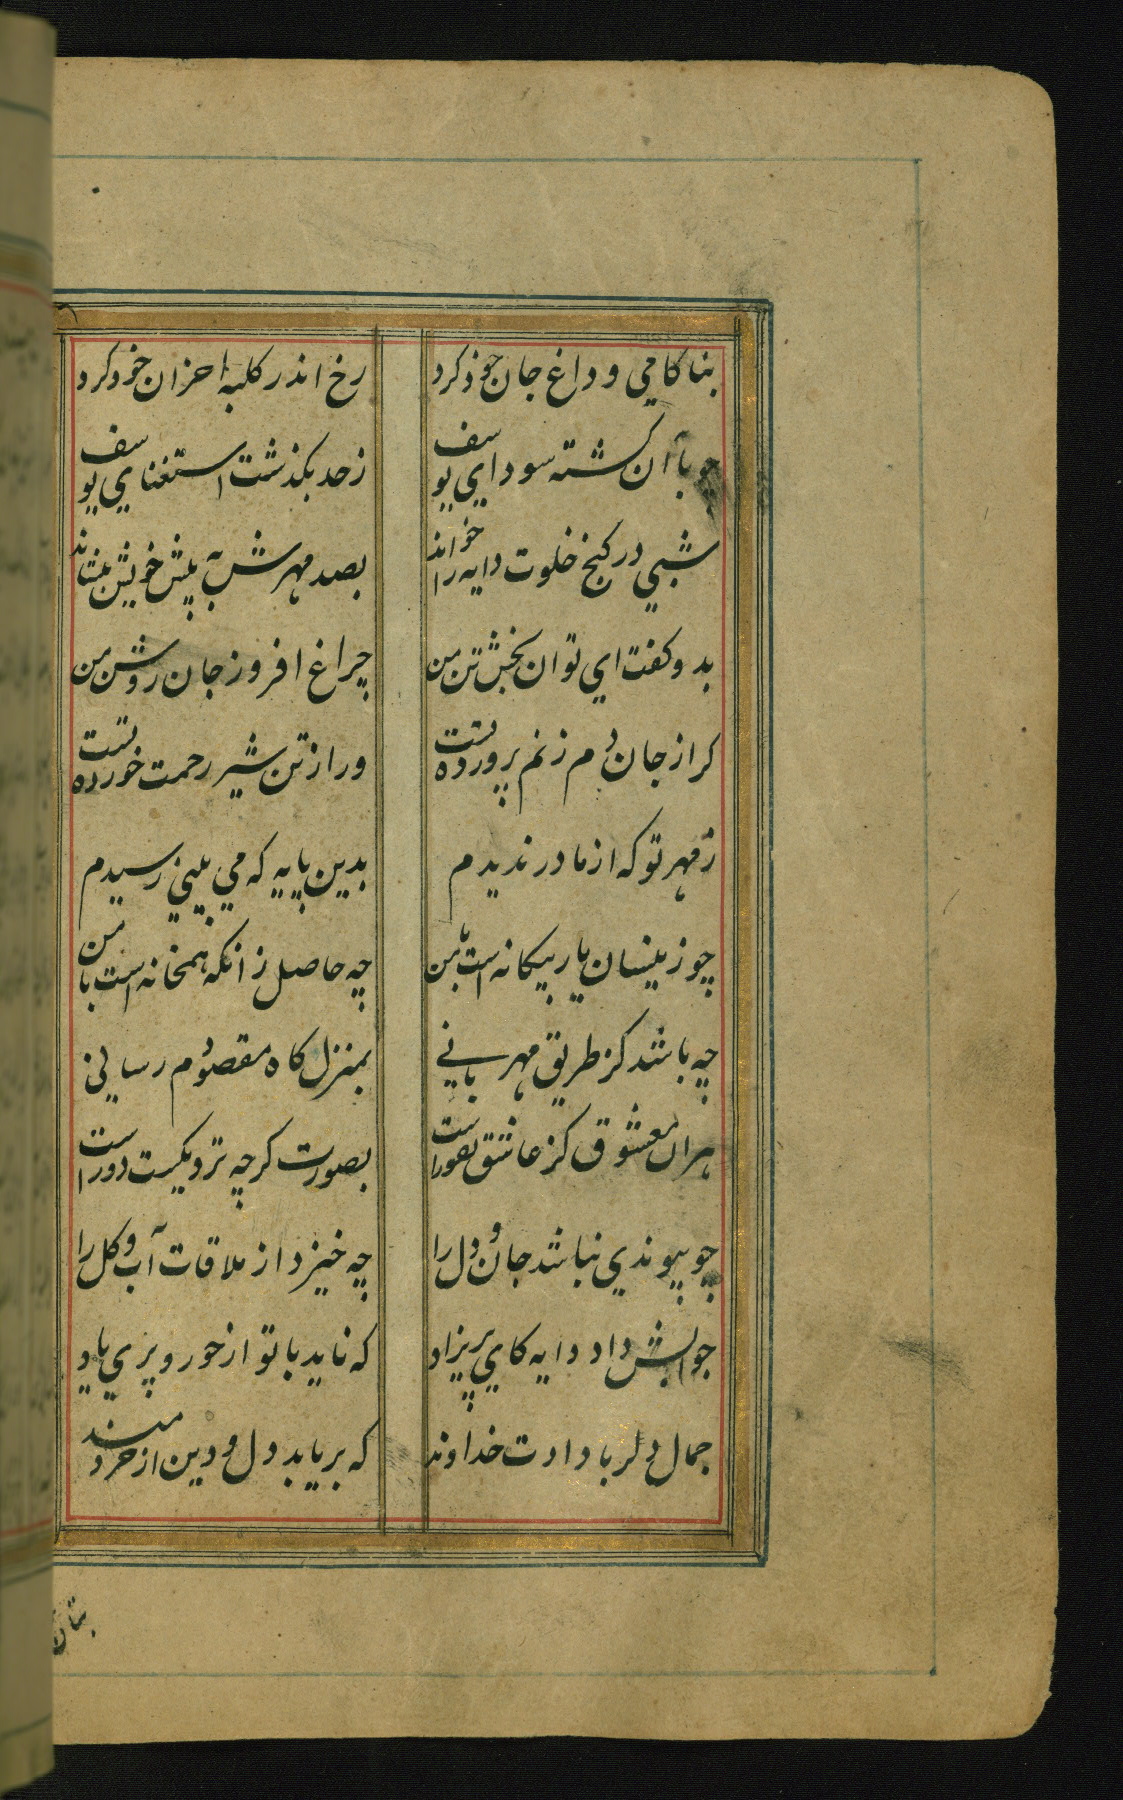 بناکامي وداغ جان خود کرد رخ اندر کلبه احزان خود کرد
چو با آن کشته سوداي يوسف زحد بکذشت استغناي يوسف
شبي در کنج خلوت دايه را خواند بصد مهرش به پيش خويش بنشاند
بدو کفت اي توان بخش تن من چراغ افروز جان روشن من
کر از جان دم زنم پرورده تست ور از تن شير رحمت خورده تست
ز مهر تو که از مادر نديدم بدين پايه که مي بيني رسيدم
چو زينسان يار بيکانه است با من چه حاصل زانکه همخانه است با من
چه باشد کز طريق مهرباني بمنزل کاه مقصودم رساني
هران معشوق کز عاشق نفور است بصورت کرچه نزديکست دور است
چو پيوندي نباشد جان و دل را چه خيزد از ملاقات آب و کل را
جوابش داد دايه کاي پريزاد که نايد با تو از حور و پري ياد
جمال دلربا دادت خداوند که بربايد دل و دين از خردمند